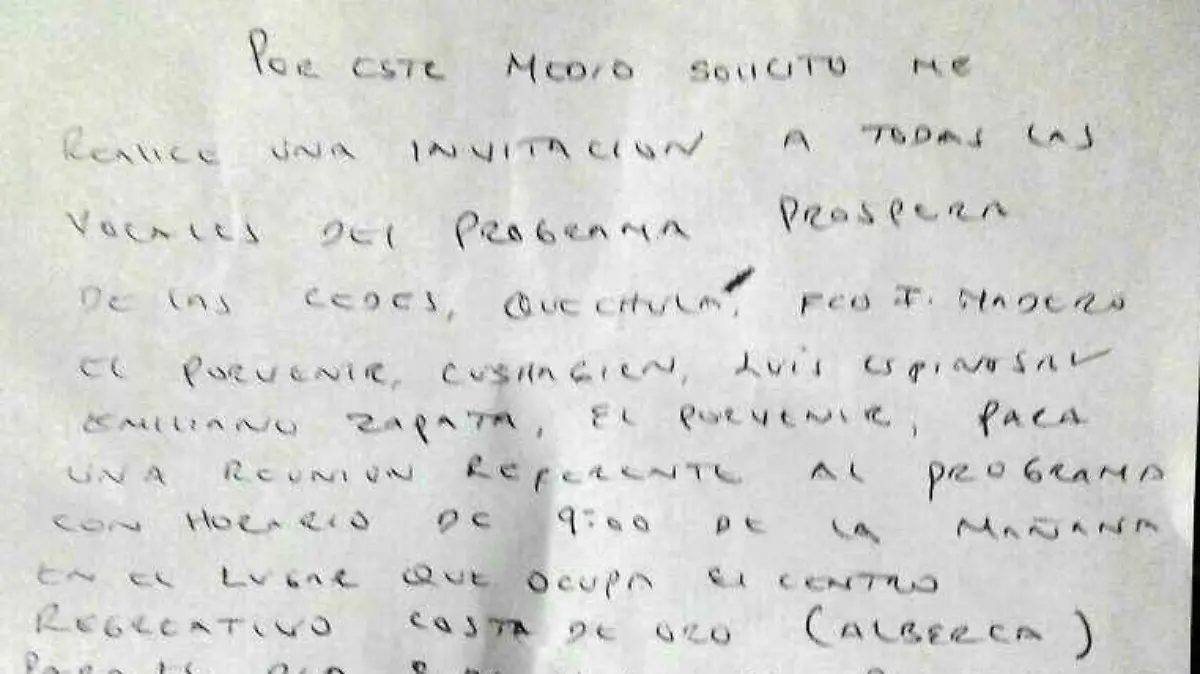 POR ESTE MEDIO SOLICITO ME
REALICE UNA INVITACION A TODAS LAS
VOCALES DEL PROGRAMA PROSPERA
DE LAS CEDES, QUECHULA, FCO I. MADERO
EL PORVENIR, LUIS ESPINOSA
EMILIANO ZAPATA, EL PORVENIR, PARA
UNA REUNION REFERENTE AL PROGRAMA
CON HORARIO DE 9:00 DE LA MAÑANA
EN EL LUGAR QUE OCUPA EL CENTRO
RECREATIVO COSTA DE ORO (ALBERCA)
PARA EL DIA